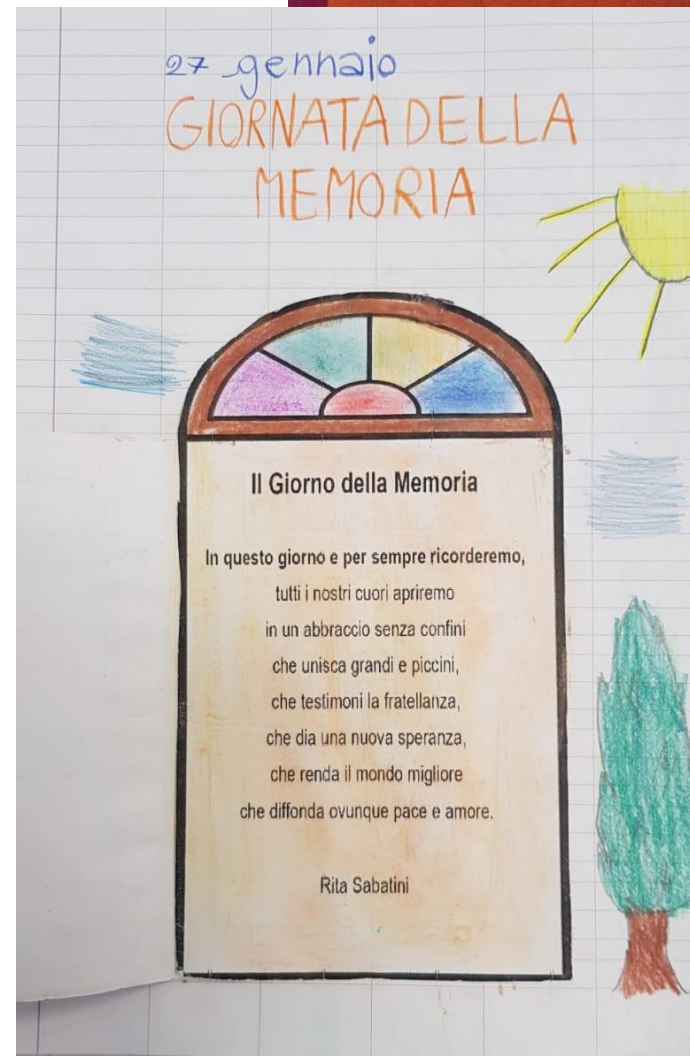 27 gennaio
GIORNATA DELLA
MEMORIA
Il Giorno della Memoria
In questo giorno e per sempre ricorderemo,
tutti i nostri cuori apriremo
in un abbraccio senza confini
che unisca grandi e piccini,
che testimoni la fratellanza,
che dia una nuova speranza,
che renda il mondo migliore
che diffonda ovunque pace e amore.
Rita Sabatini